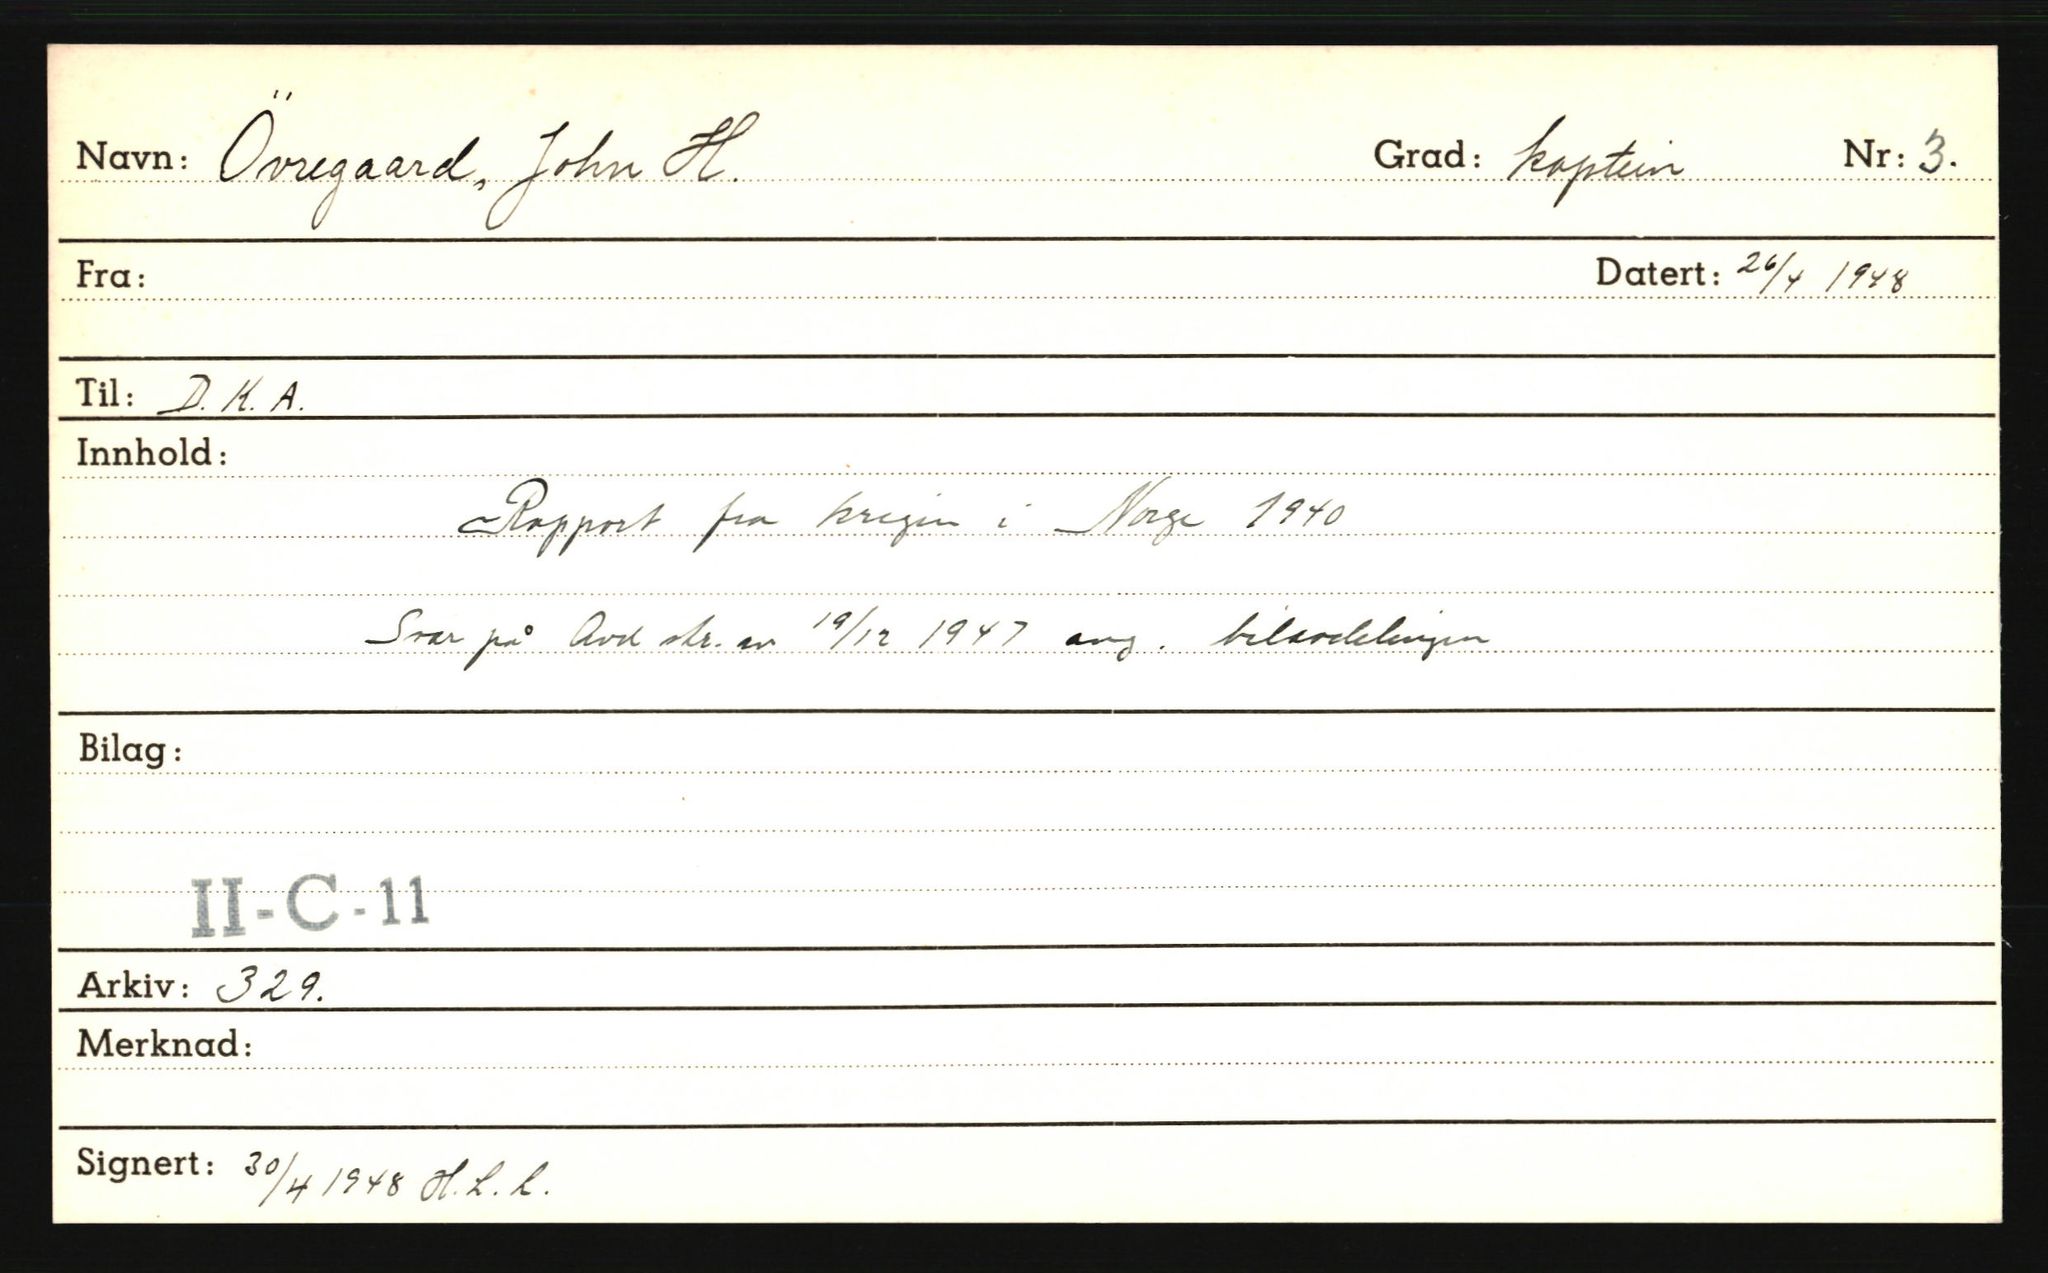 Navn: Övregaard, John H. Grad: kaptein Nr: 3.
Fra: Datert: 26/4 1948
Til: D. K. A.
Innhold:
Rapport fra krigen i Norge 1940
Svar på Avd skr. av 19/12 1947 ang. bilavdelingen
Bilag:
II-C-11
Arkiv: 329.
Merknad:
Signert: 30/4 1948 H. L. L.